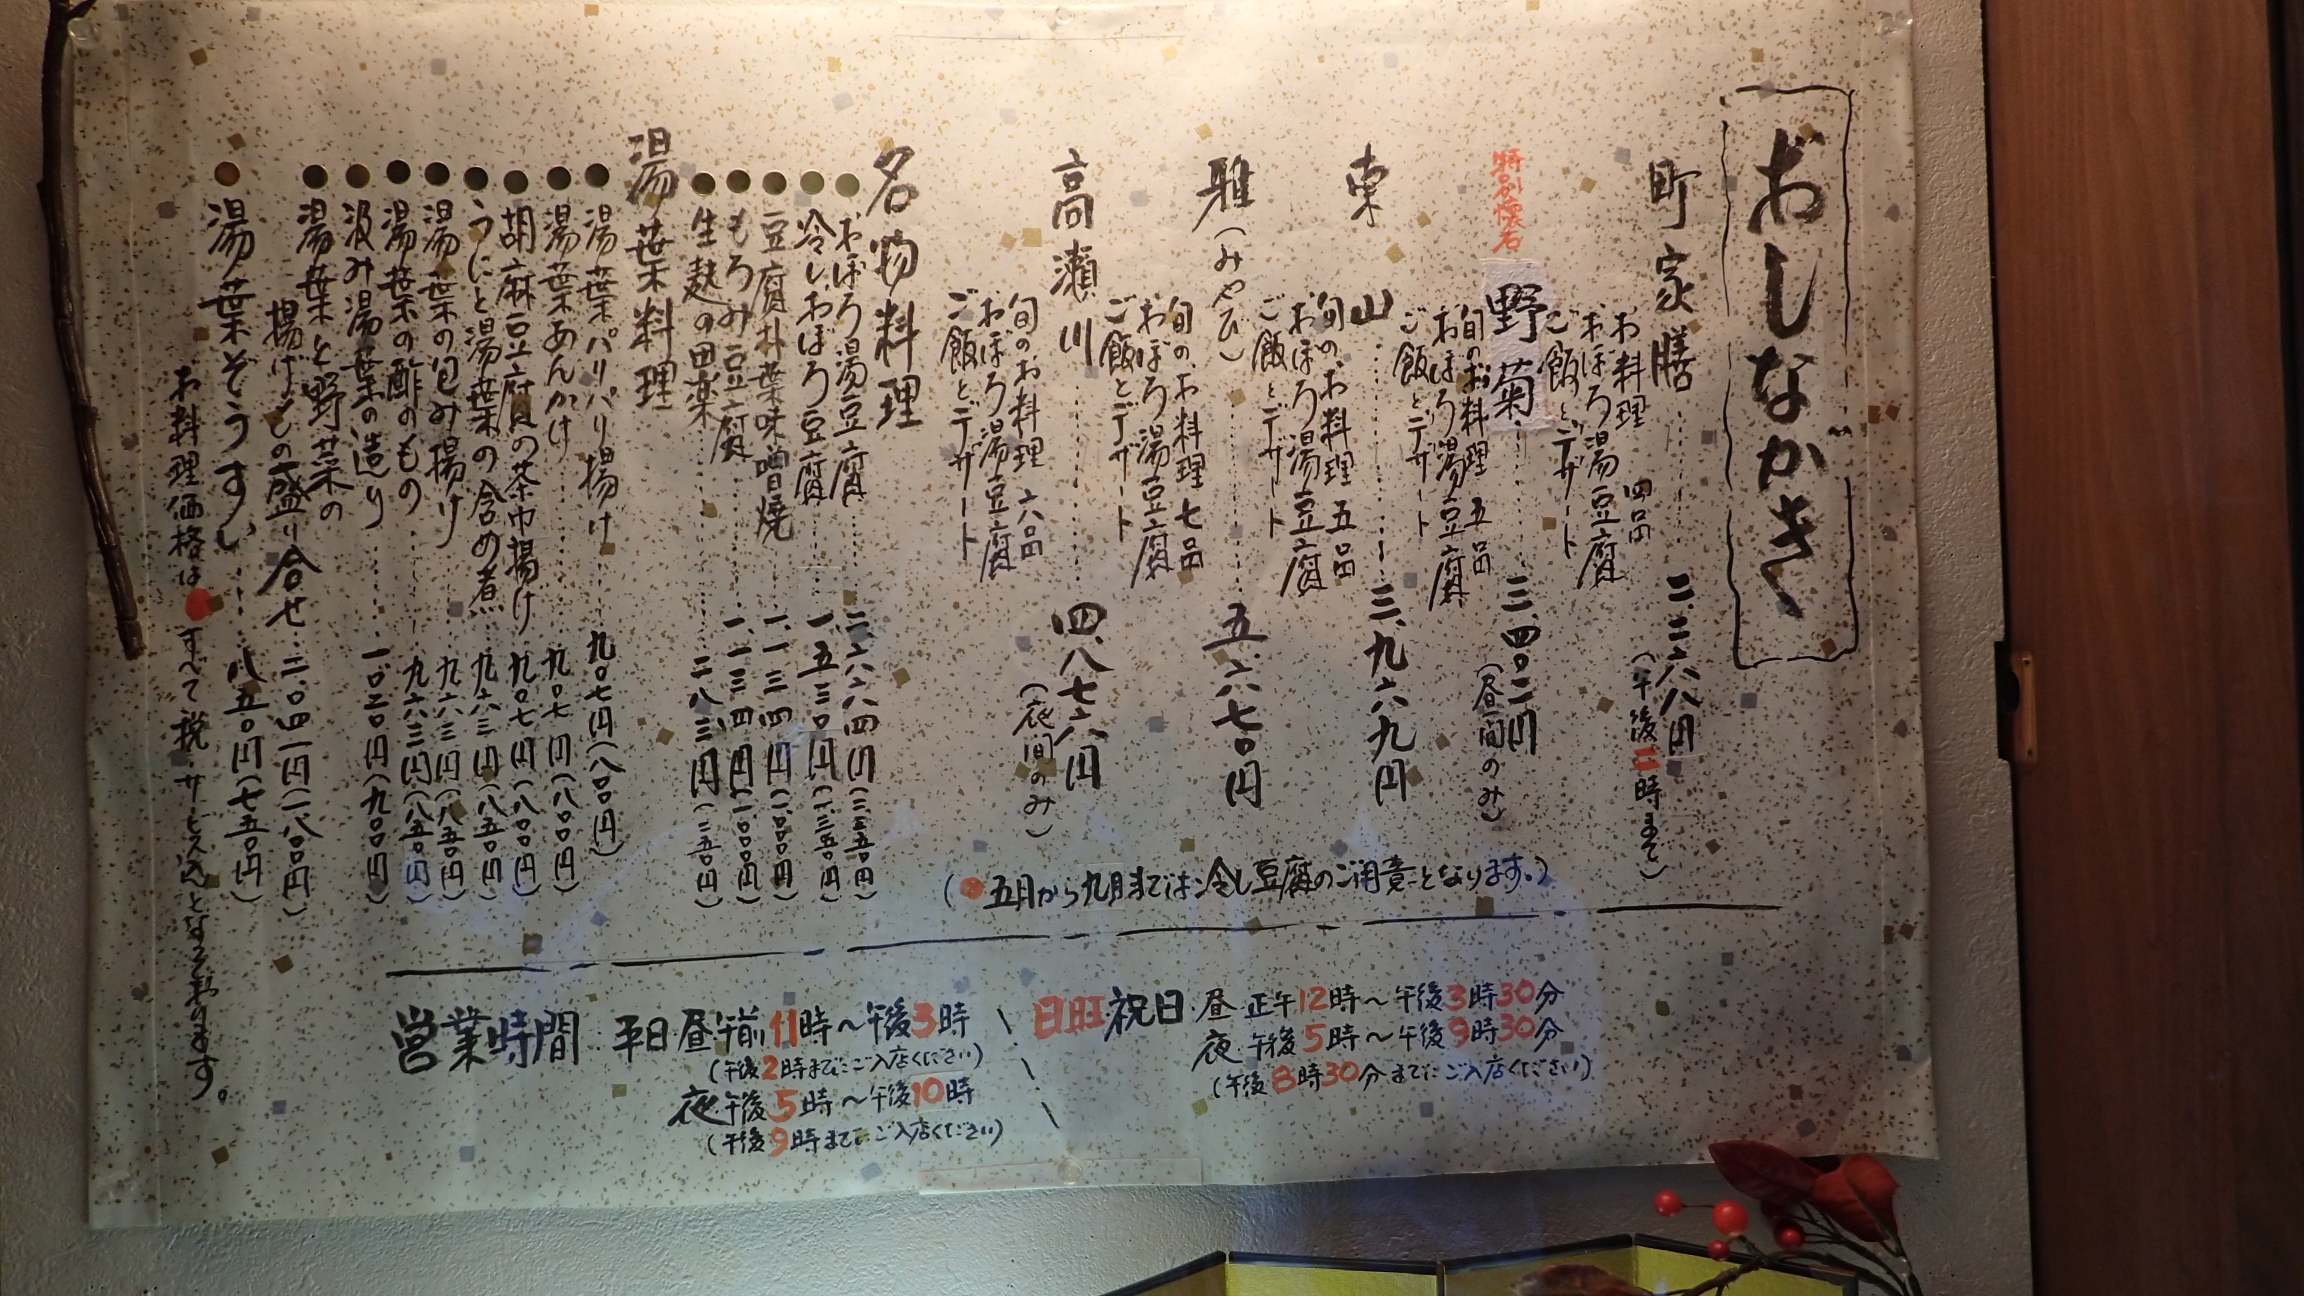 おしながき
町家膳……二、二六八円
(午後二時まで)
お料理 四品
おぼろ湯豆腐
ご飯とデザート
特別懐石
野菊……三、四〇二円
(昼間のみ)
旬のお料理 五品
おぼろ湯豆腐
ご飯とデザート
東山……三、九六九円
旬のお料理 五品
おぼろ湯豆腐
ご飯とデザート
雅(みやび)……五、六七〇円
旬のお料理 七品
おぼろ湯豆腐
ご飯とデザート
高瀬川……四、八七六円
(夜間のみ)
旬のお料理 六品
おぼろ湯豆腐
ご飯とデザート
(五月から九月までは冷し豆腐のご用意となります。)
名物料理
おぼろ湯豆腐
冷しおぼろ豆腐……一、五三〇円(一、三五〇円)
豆腐朴葉味噌焼……一、一三四円(一、〇〇〇円)
もろみ豆腐……一、一三四円(一、〇〇〇円)
生麩の田楽……二八三円(二五〇円)
湯葉料理
湯葉パリパリ揚げ……九〇七円(八〇〇円)
湯葉あんかけ……九〇七円(八〇〇円)
胡麻豆腐の茶巾揚げ……九〇七円(八〇〇円)
うにと湯葉の含め煮……九六三円(八五〇円)
湯葉の包み揚げ……九六三円(八五〇円)
湯葉の酢のもの……九六三円(八五〇円)
汲み湯葉の造り……一、〇二〇円(九〇〇円)
湯葉と野菜の
揚げもの盛り合せ……二、〇四一円(一、八〇〇円)
湯葉ぞうすい……八五〇円(七五〇円)
お料理価格はすべて税・サービス込となっております。
営業時間 平日 昼 午前11時〜午後3時
(午後2時までにご入店ください)
夜 午後5時〜午後10時
(午後9時までにご入店ください)
日旺祝日 昼 正午12時〜午後3時30分
夜 午後5時〜午後9時30分
(午後8時30分までにご入店ください)